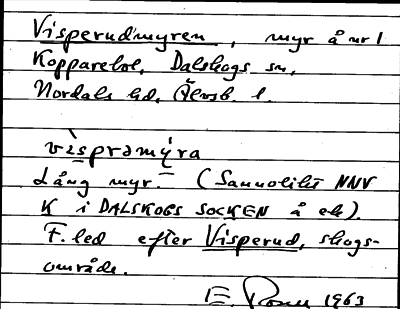 Visperudmyren, myr å nr 1
Kopparebol, Dalskogs sn,
Nordals hd, Älvsb. l.
vìspramýra
Lång myr. (Sannolikt NNV
K i DALSKOGS SOCKEN å ek).
F. led efter Visperud, skogs-
område.
E. 1963